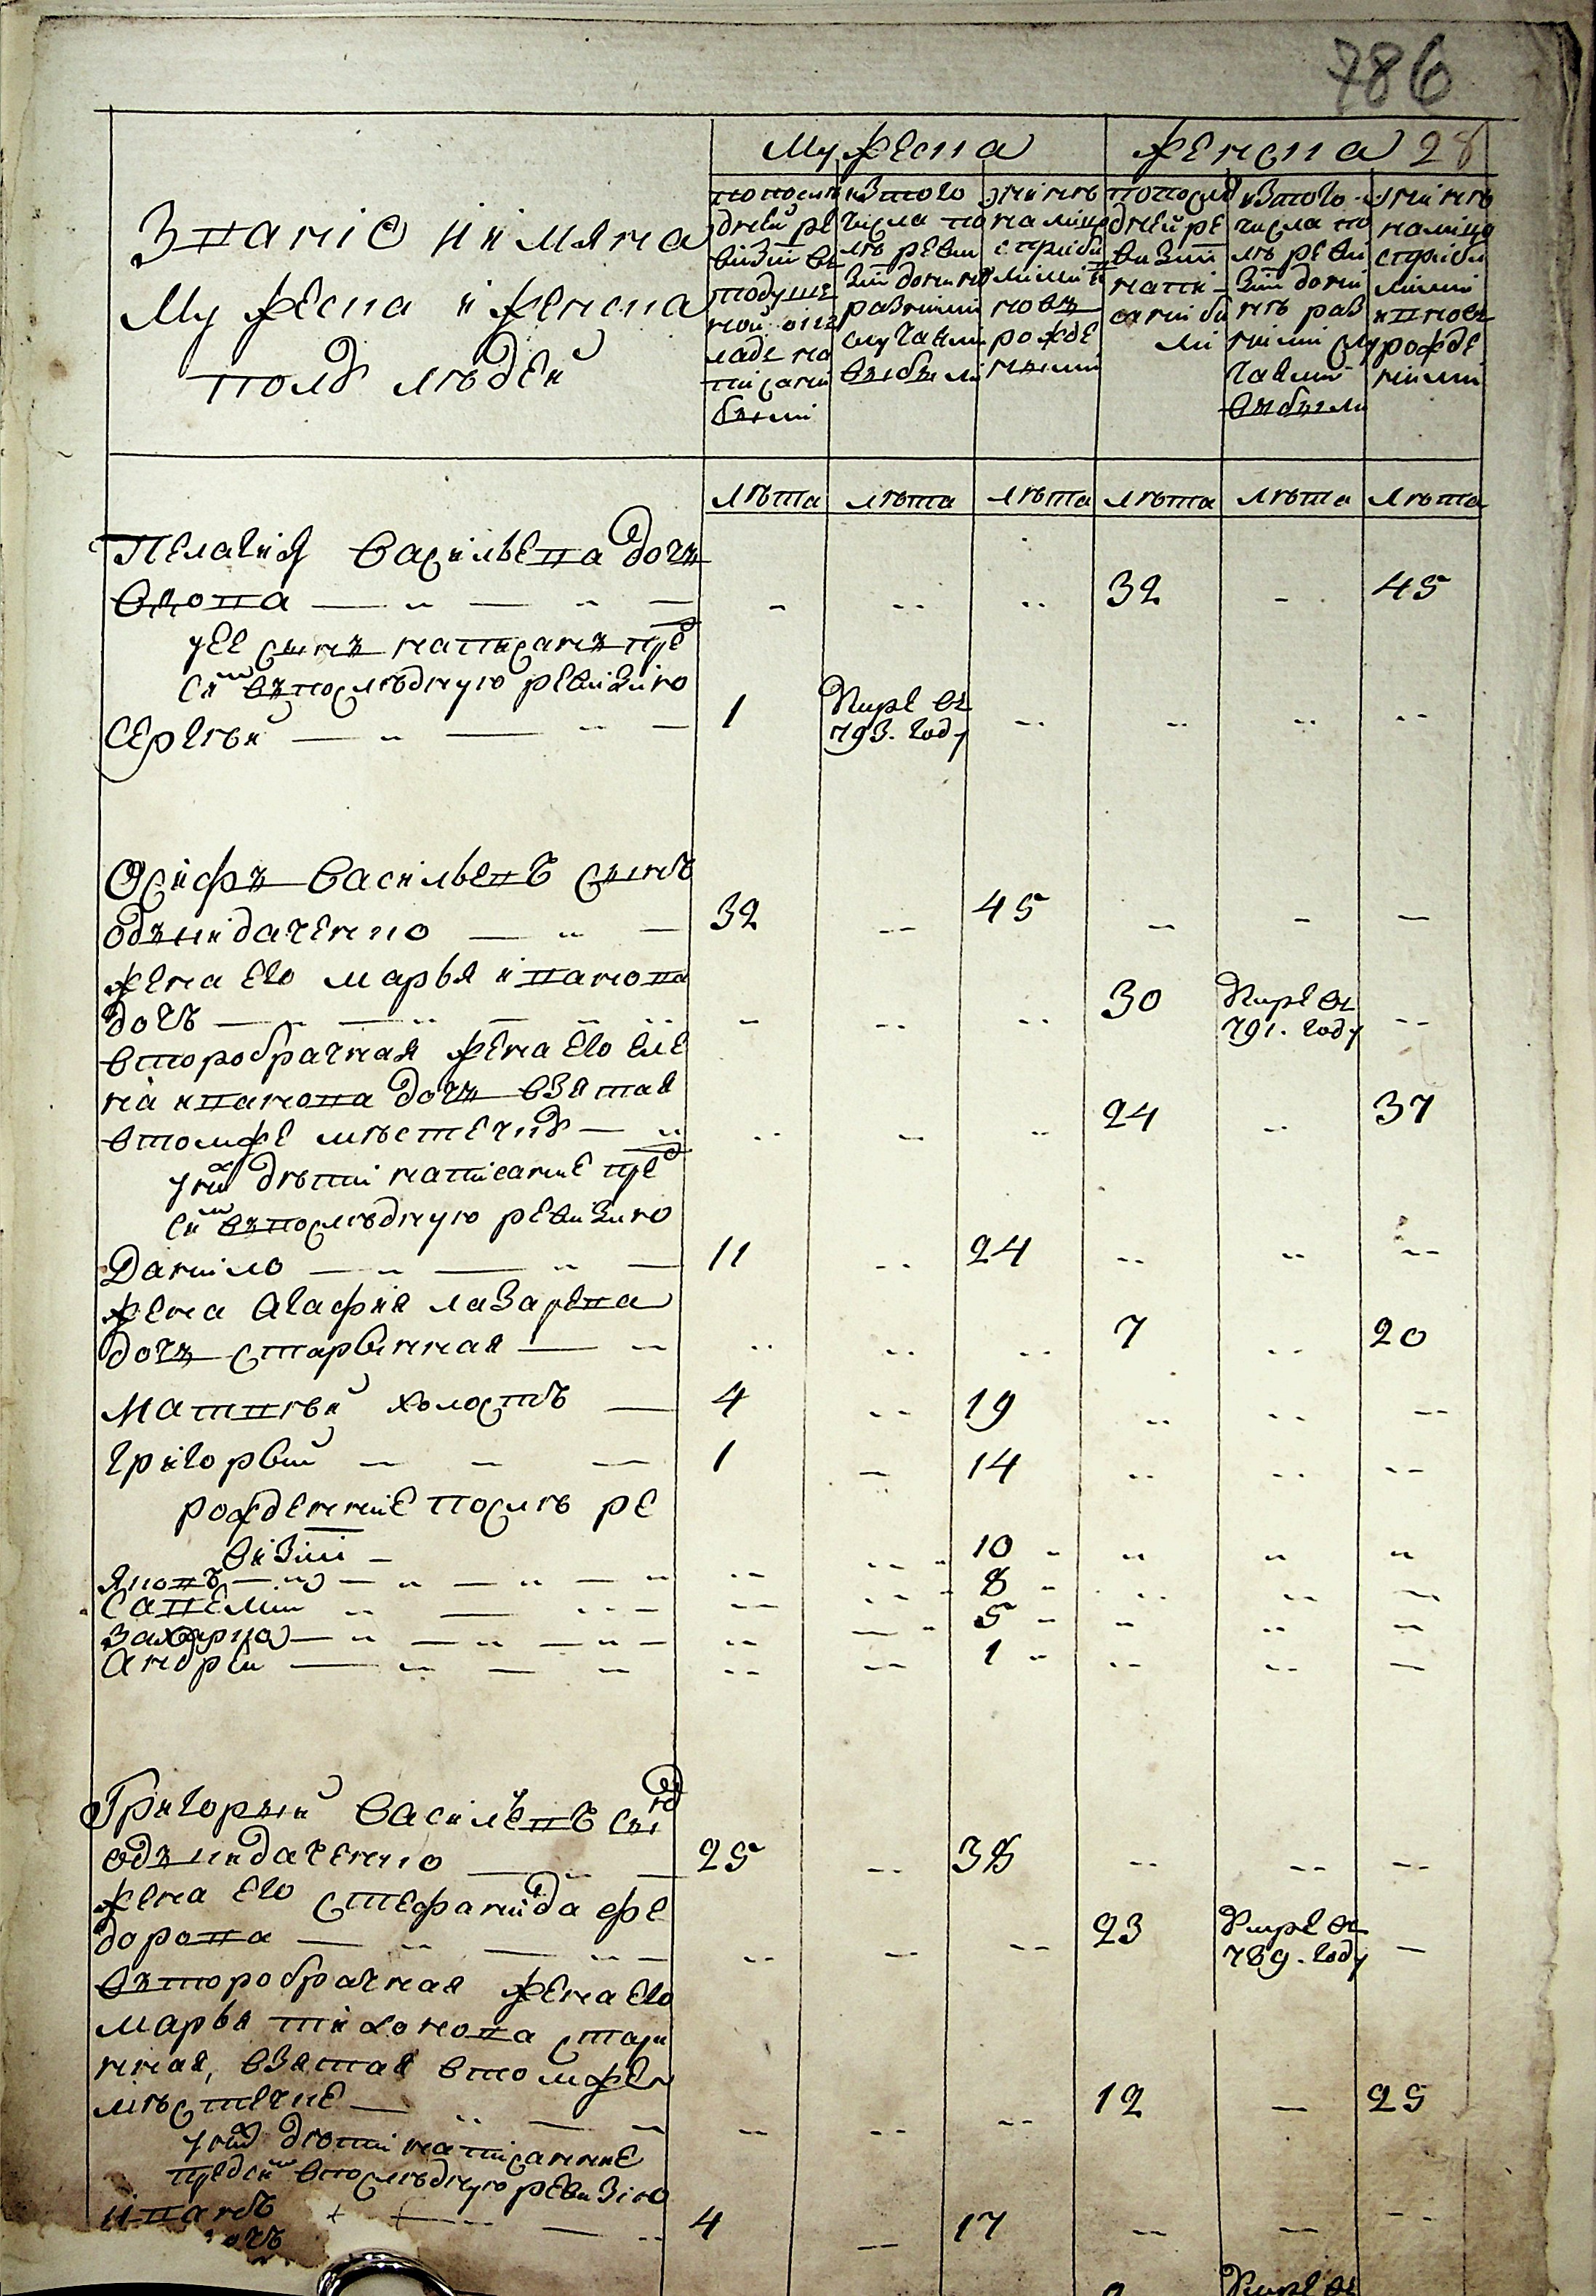 786
Мужеска
женска 28
Званіе и имяна
Мужеска и женска
полу людей
по послѣдней ревизіи въ подушной окладъ написаны были
изъ того числа послѣ ревизіи до ныне разными случаями выбыли
нынѣ на лицо с прибылыми и новорожденными
по последней ревизіи написаны были
изъ того числа послѣ ревизіи до нынѣ разными случаями выбыли
нынѣ на лицо с прибылыми и новорожденными
лѣта лѣта лѣта лѣта лѣта лѣта
Пелагия василева дочъ
вдова 32 45
у ее сынъ написанъ пред
симъ въ последнюю ревизию
Сергѣй 1 умре въ 793. году
Осифъ василевъ сынъ
одъшидаченко 32 45
жена его марья иванова
дочь 30 умре въ 791. году
второбрачная жена его еле
на иванова дочъ взятая
в томже мѣстечкѣ 24 37
у них дѣти написание пред
сим въ послѣдную ревизию
Данило 11 24
жена агафия лазарева
дочъ старинная 7 20
Матвѣй холостъ 4 19
григорей 1 14
рожденние послѣ ре
визіи
Яковъ 10
Савелий 8
Захарка 5
Андрей 1
Григорий василевъ сынъ
одъшидаченко 25 38
жена его стефанида фе
дорова 23 умре въ 789. году
въторобрачная жена его
марья тихонова стари
нная, взятая в томже
мѣстечке 12 25
у них дѣти написанние
предсим в послѣдную ревизию
иванъ 4 17
умре въ